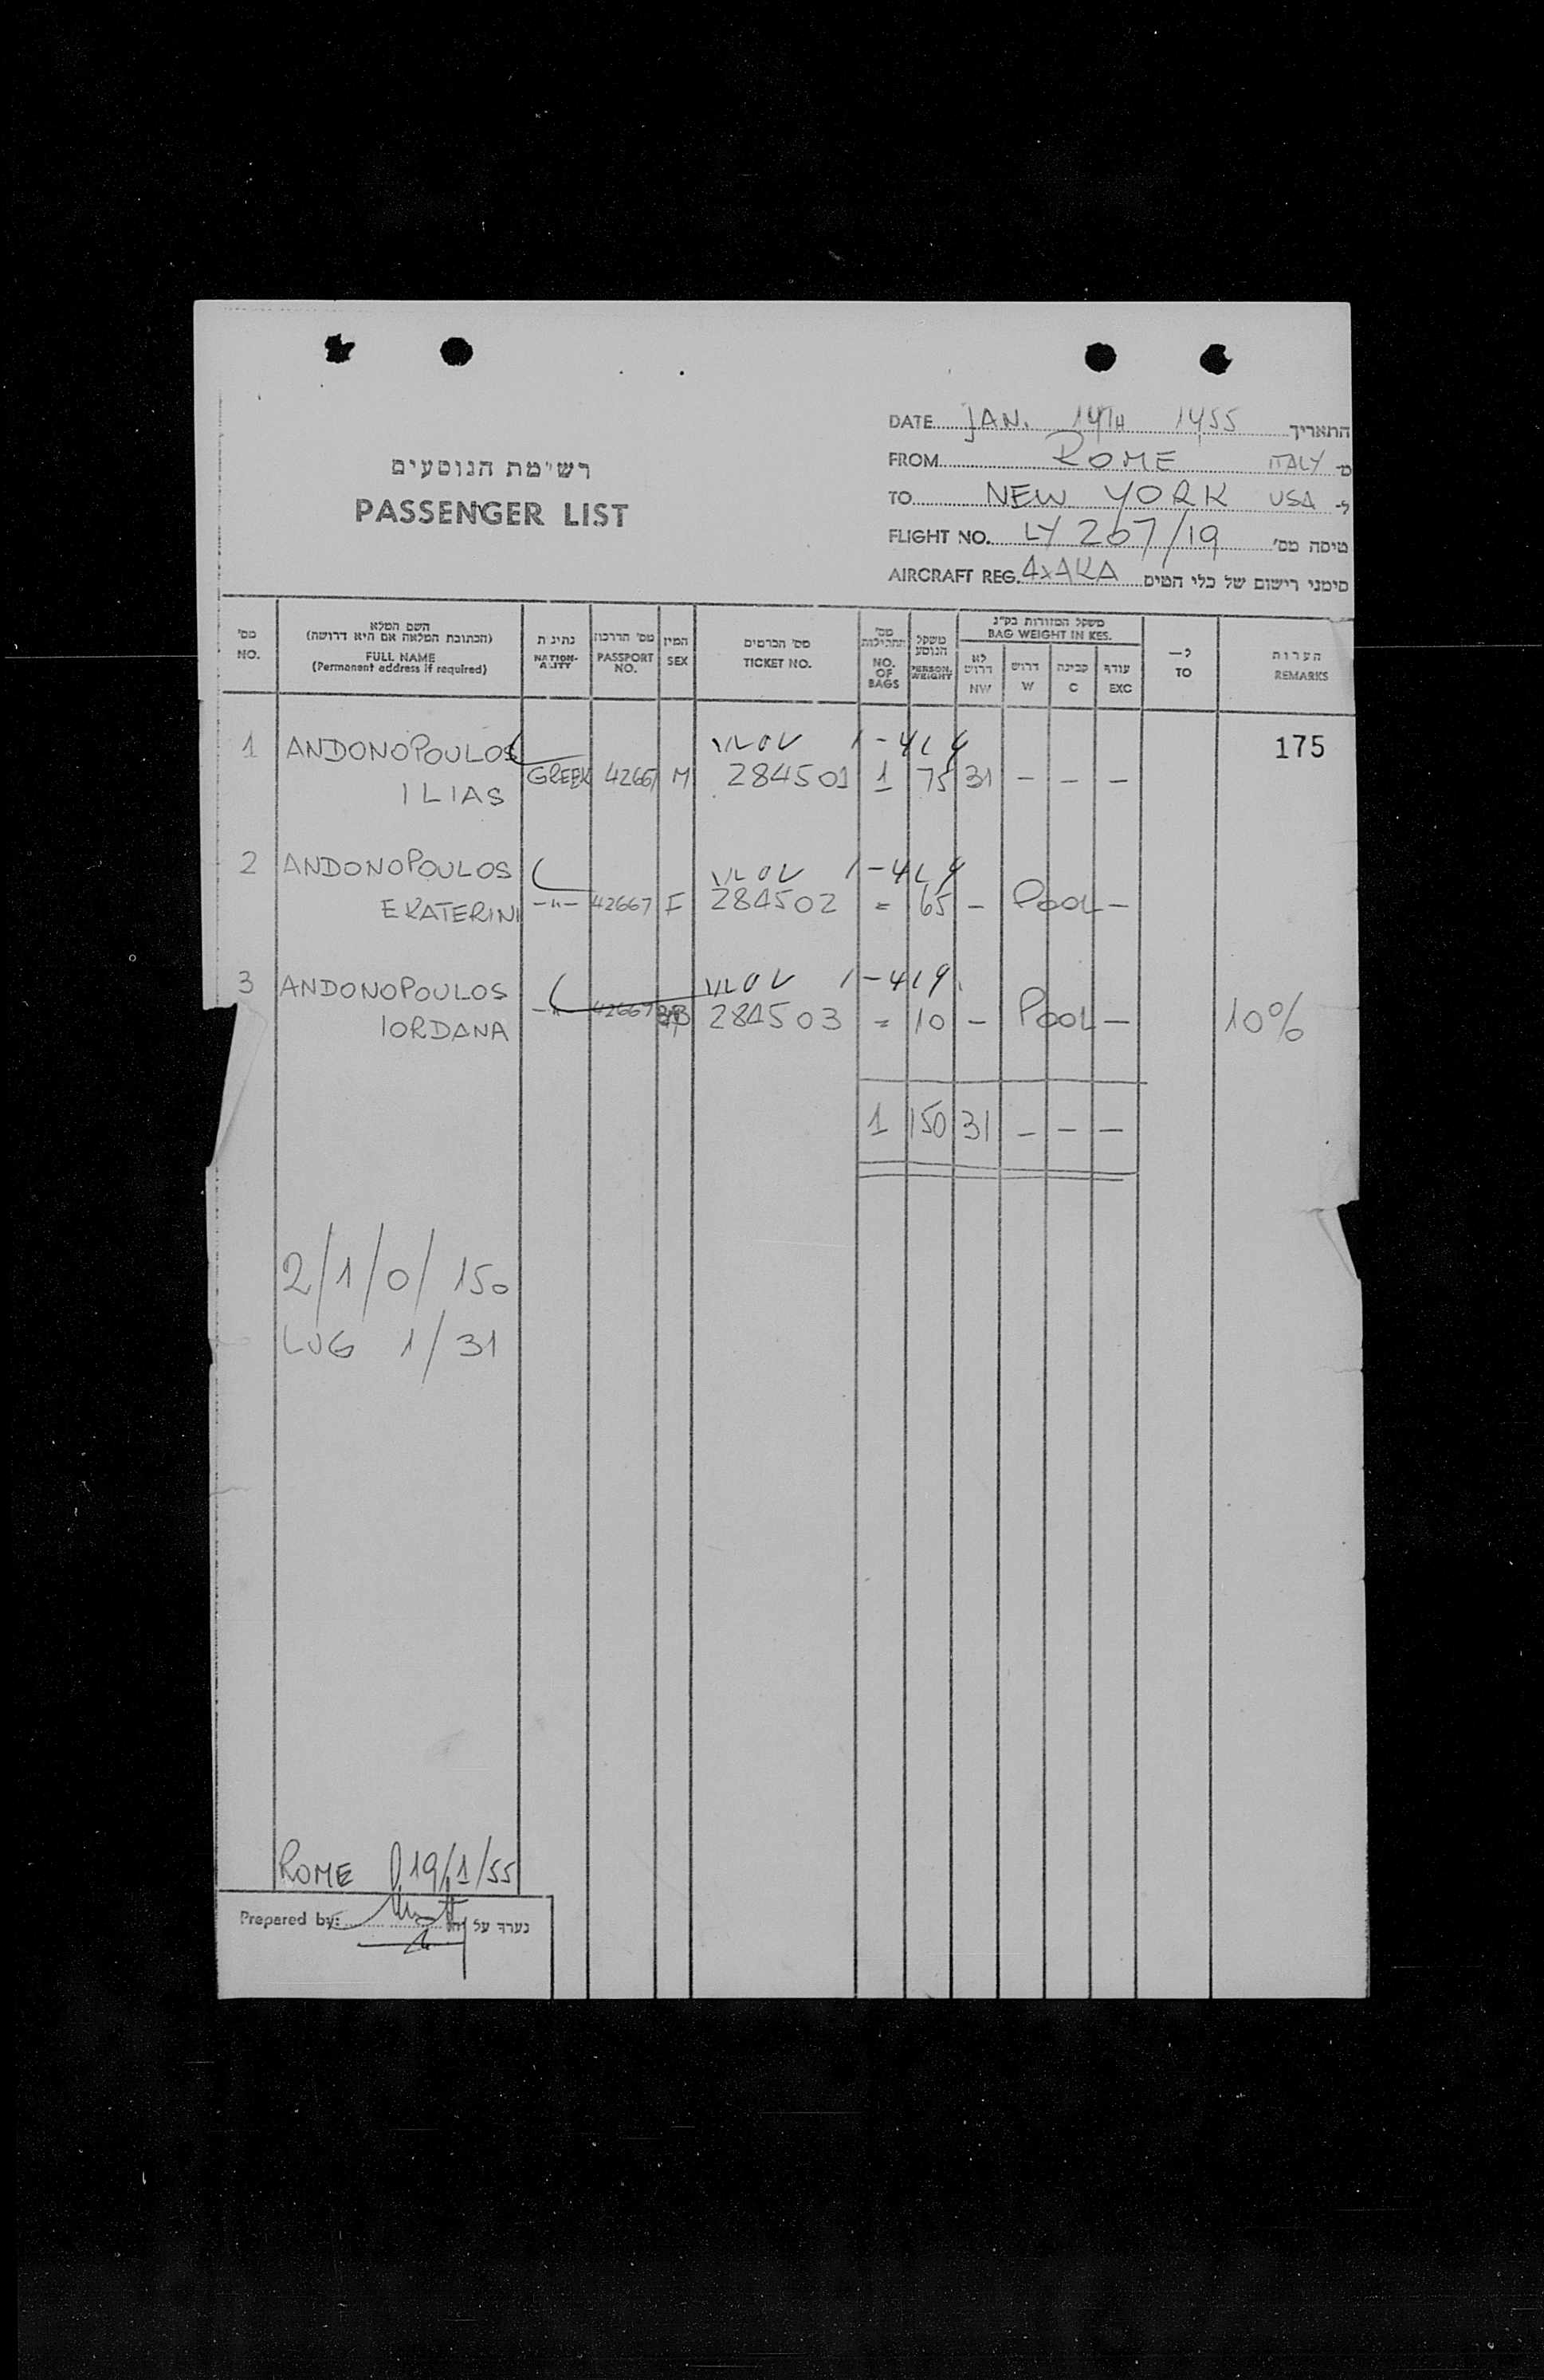 DATE JAN. 19TH 1955 התאריך
FROM ROME ITALY מ-
TO NEW YORK USA ל-
FLIGHT NO. LY 267/19 טיסה מס'
AIRCRAFT REG. 4XAKA סימני רישום של כלי הטיס
רשימת הנוסעים
PASSENGER LIST
מס' השם המלא נתינות מס' הדרכון המין מס' הכרטיס מס' החבילות משקל הנוסע משקל המזודות בק"ג ל— הערות
(הכתובת המלאה אם היא דרושה) לא דרוש דרוש קבינה עודף
NO. FULL NAME NATION-ALITY PASSPORT NO. SEX TICKET NO. NO. OF BAGS PERSON. WEIGHT BAG WEIGHT IN KES. TO REMARKS
(Permanent address if required) NW W C EXC
175
1 ANDONOPOULOS
ILIAS GREEK 42667 M 284501 1 75 31 — — —
2 ANDONOPOULOS
EKATERINI -"- 42667 F 284502 = 65 — POOL —
3 ANDONOPOULOS
IORDANA -"- 42667 284503 = 10 — POOL — 10%
1 150 31 — — —
2/1/0/ 150
LUG 1/31
ROME 19/1/55
Prepared by: נערך על ידי